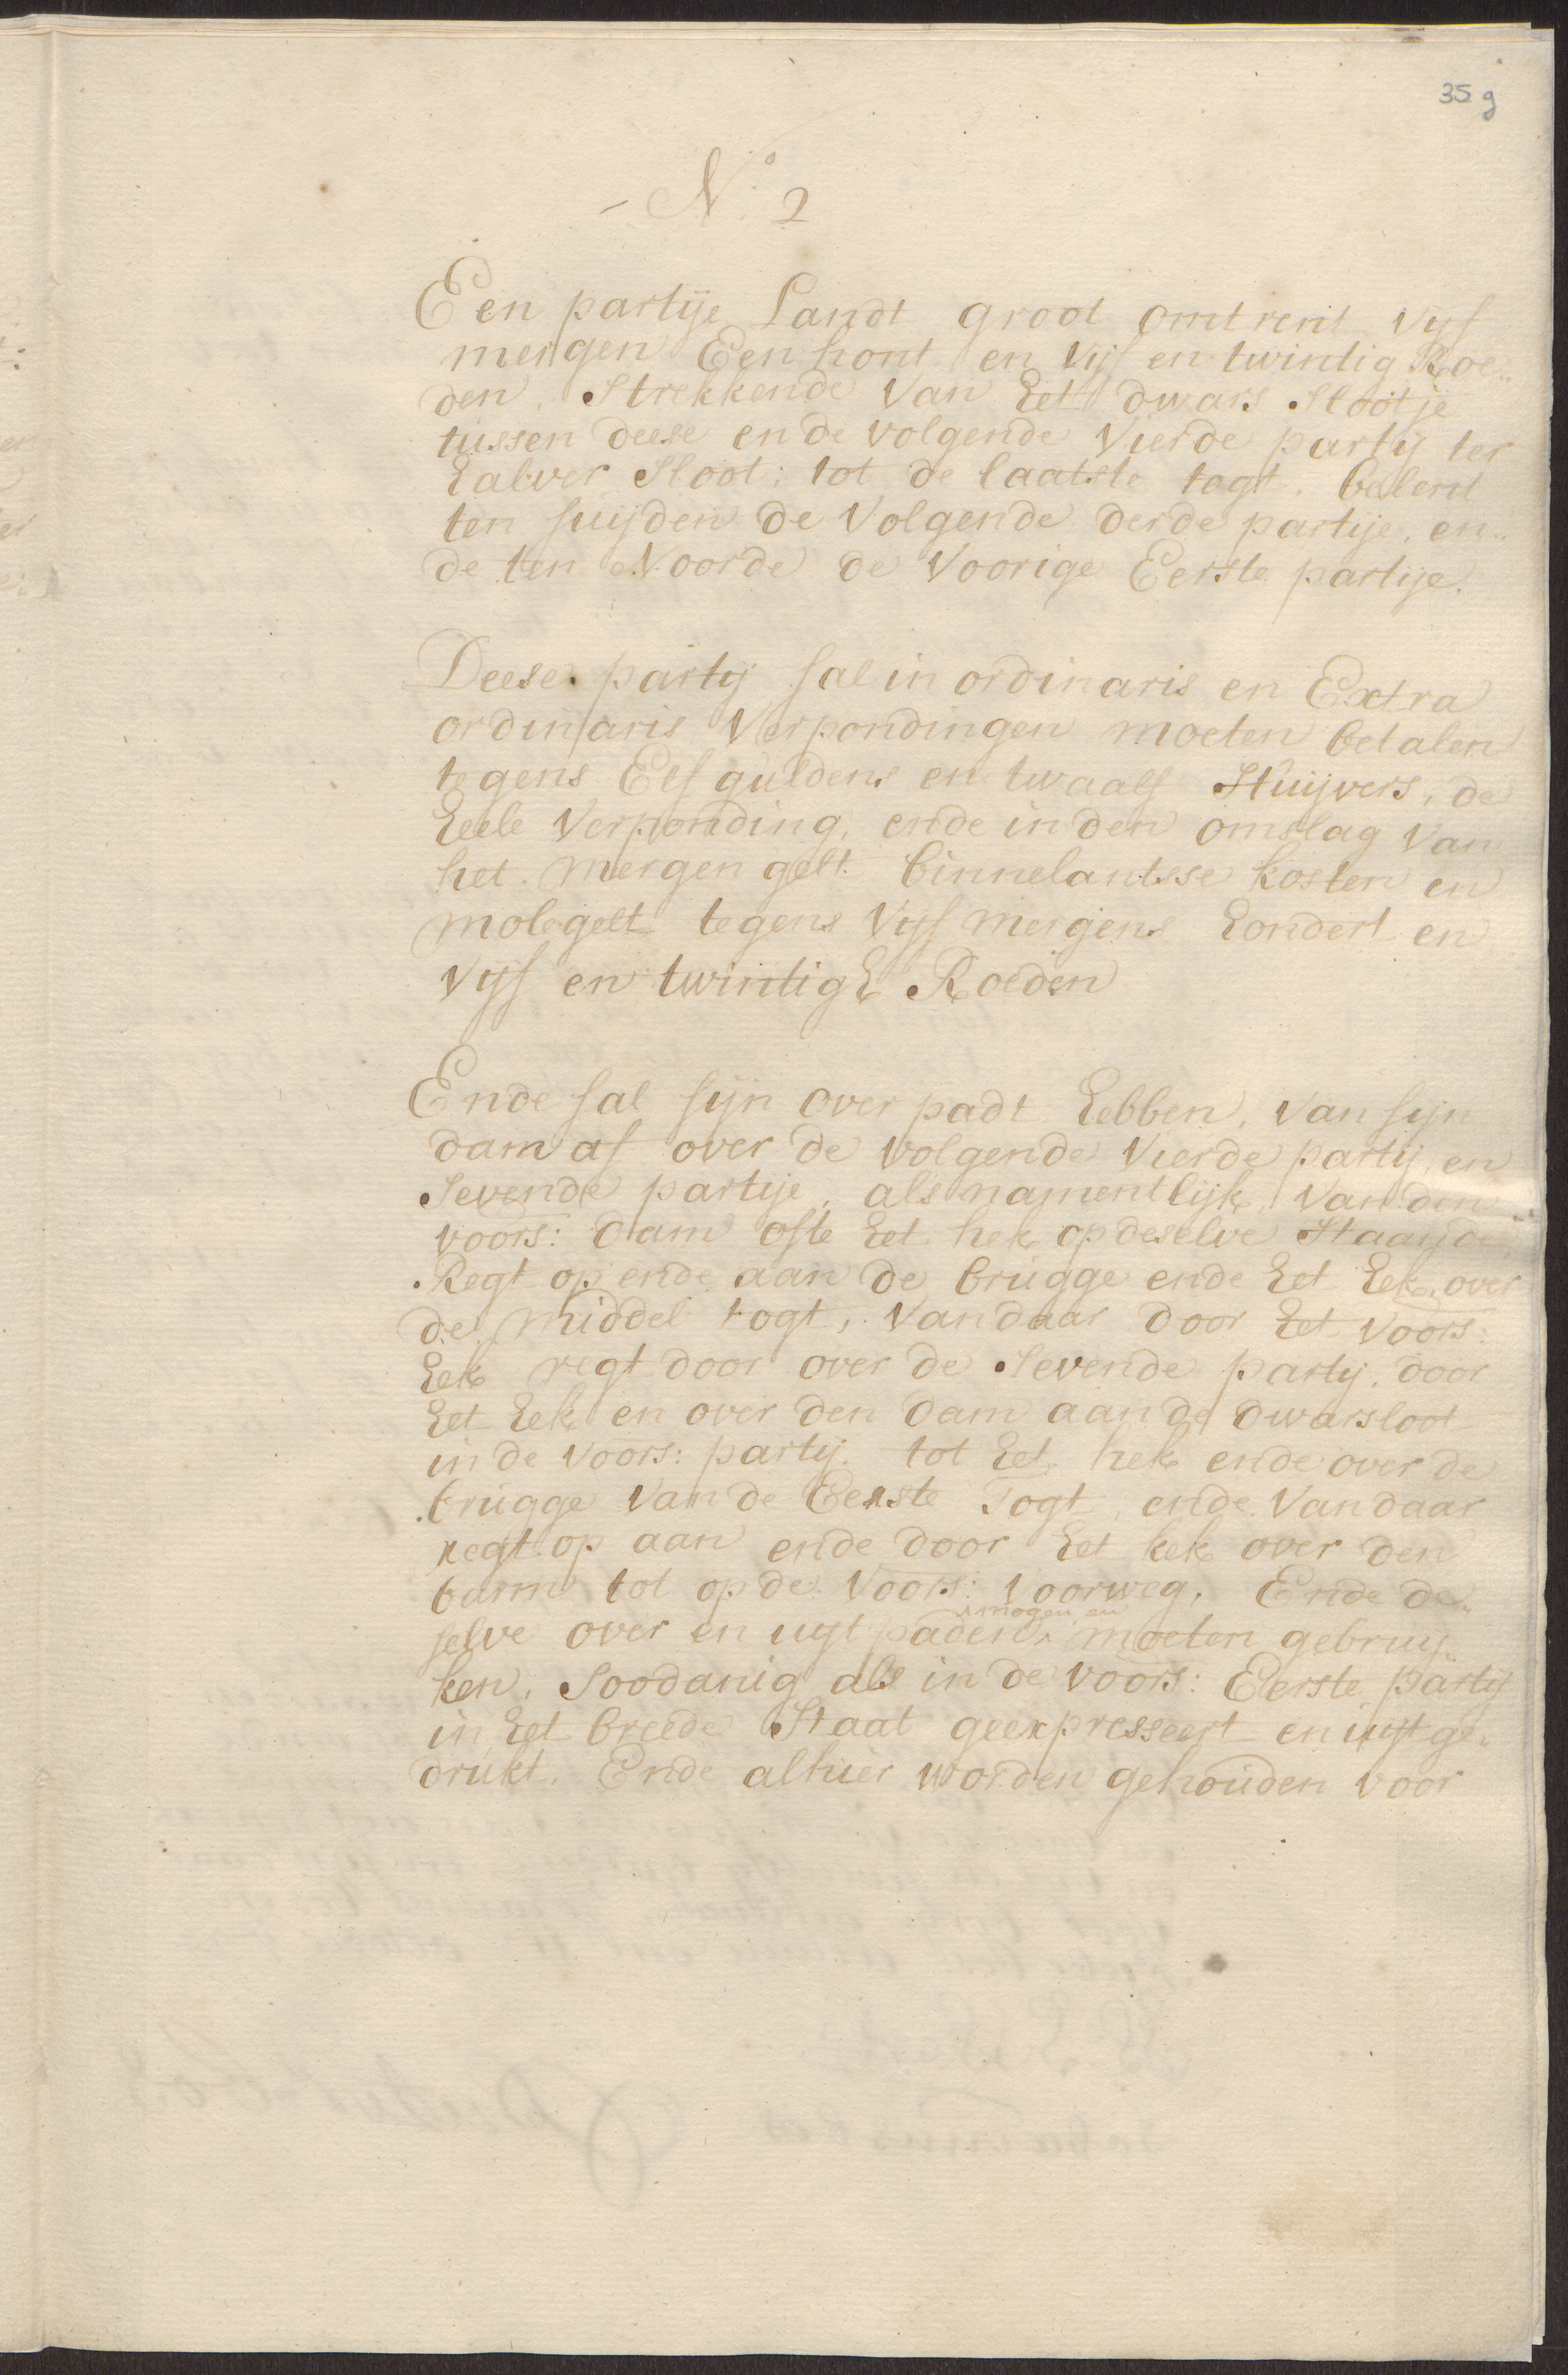 35 g
- N.o 2
Een partije Landt groot omtrent vijf
mergen Een hont en vijf en twintig Roe„
den, Strekkende van het dwars Slootje
tussen deese en de volgende vierde partij ter
halver Sloot: tot de laatste togt. belent
ten suijden de volgende derde partije, en„
de ten Noorde de voorige Eerste partije.
Deese partij sal in ordinaris en Extra
ordinaris Verpondingen moeten betalen
tegens Elf guldens en twaalf Stuijvers, de
heele Verponding, ende in den omslag van
het mergen gelt binnelantsse kosten en
molegelt tegens Vijf mergens hondert en
Vijf en twintigh Roeden
Ende sal sijn over padt hebben, van sijn
dam af over de volgende Vierde partij en
Sevende partije, als namentlijk, van den
voors: dam ofte het hek op deselve Staande,
Regt op ende aan de brugge ende het hek over
de middel togt, van daar door het voors:
hek regt door over de Sevende partij, door
het hek en over den dam aan de dwarsloot
in de voors: partij. tot het hek ende over de
brugge van de Eerste Togt, ende van daar
regt op aan ende door het hek over den
barm tot op de Voors: Voorweg. Ende de„
selve over en uijt paden mogen en moeten gebruij„
ken, Soodanig als in de voors: Eerste partij
in het breede Staat geexpresseert en uijtge„
drukt. Ende alhier worden gehouden voor